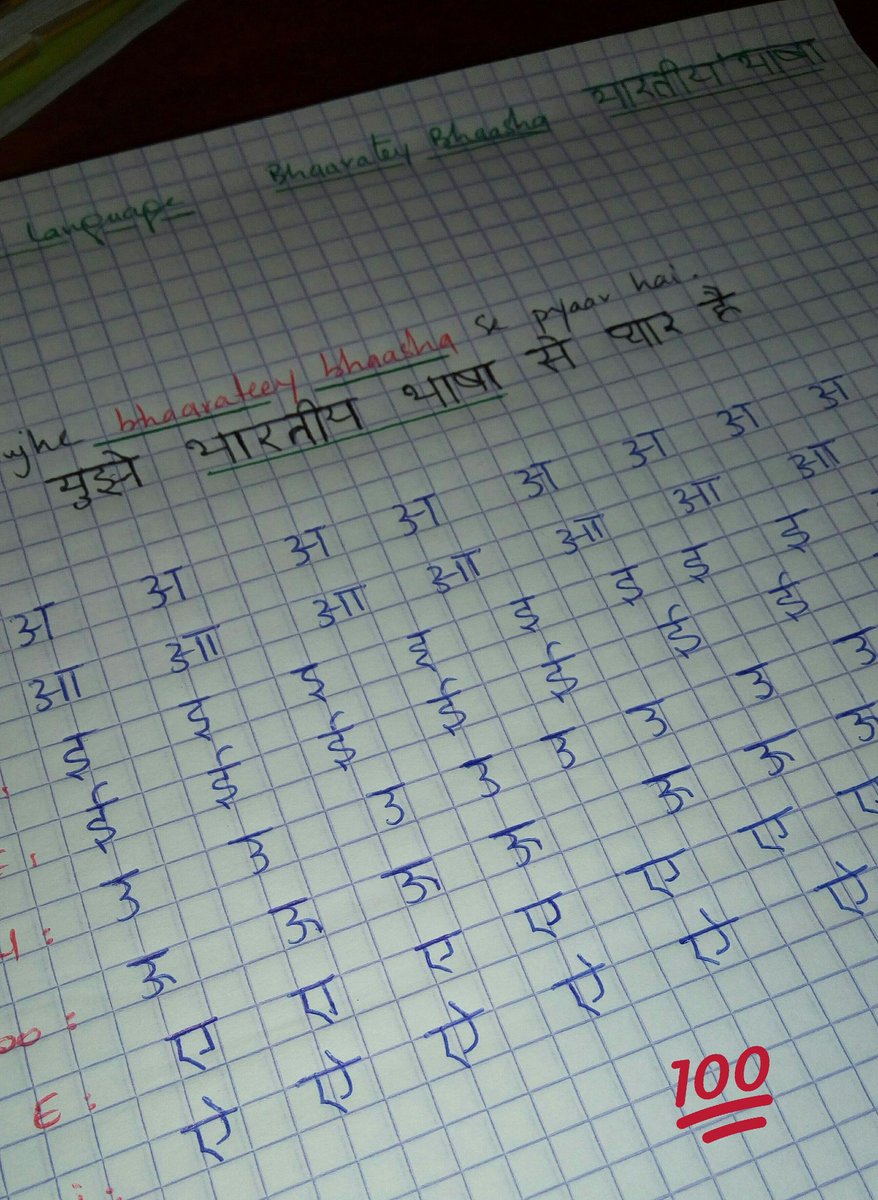 Language Bhaaratey Bhaasha भारतीय भाषा
bhaarateey bhaasha se pyaar hai.
मुझे भारतीय भाषा से प्यार है
अ अ अ अ अ अ अ अ
आ आ आ आ आ आ आ
इ इ इ इ इ इ इ इ
ई ई ई ई ई ई ई
उ उ उ उ उ उ उ उ
oo: ऊ ऊ ऊ ऊ ऊ ऊ ऊ
E: ए ए ए ए ए ए ए
ऐ ऐ ऐ ऐ ऐ ऐ
100